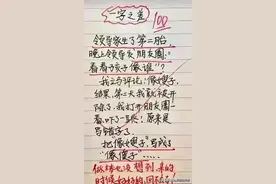 一字之差
100
领导家生了第二胎
晚上领导发朋友圈:“
看看孩子像谁”?
我立马评论:像嫂子,
结果,第二天我就被开
除了,我打开朋友圈一
看,吓了一跳!原来是
写错字了
把“像嫂子”写成了
“像傻子”……